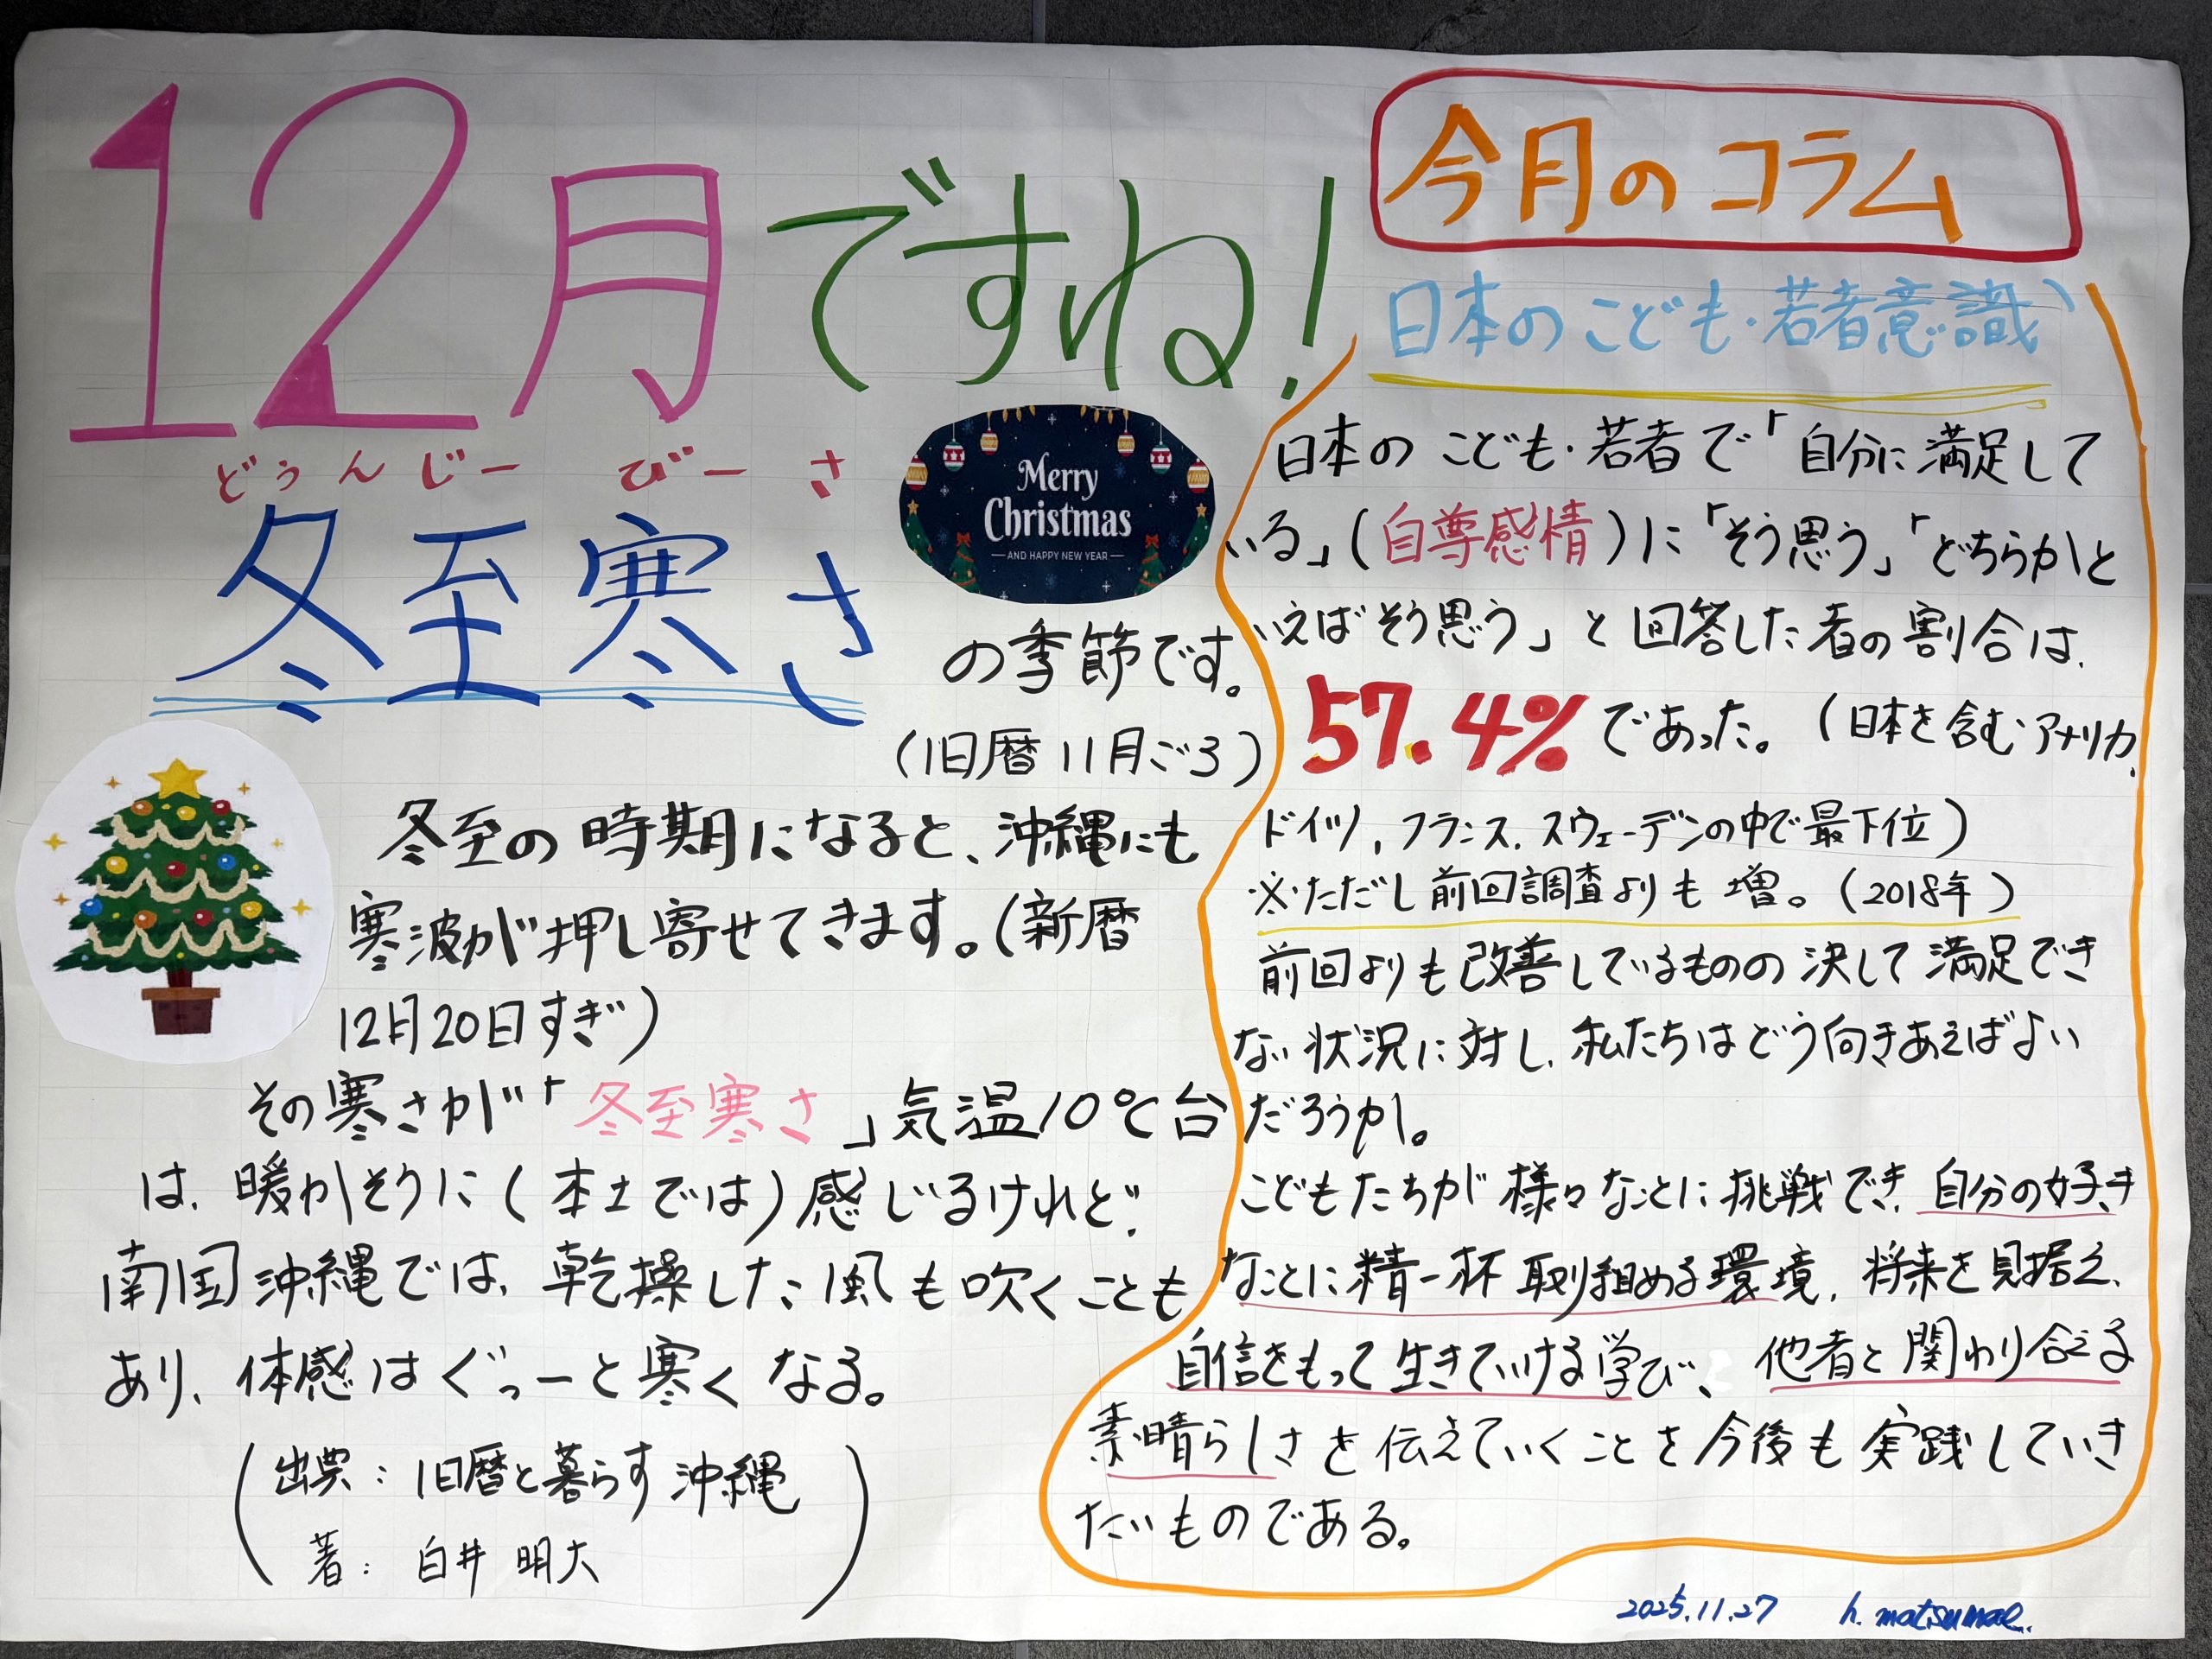 12月ですね!
どぅんじーびーさ
冬至寒さ
の季節です。
(旧暦11月ごろ)
Merry
Christmas
AND HAPPY NEW YEAR
冬至の時期になると、沖縄にも
寒波が押し寄せてきます。(新暦
12月20日すぎ)
その寒さが「冬至寒さ」気温10℃台
は、暖かそうに(本土では)感じるけれど、
南国沖縄では、乾燥した風も吹くことも
あり、体感はぐっーと寒くなる。
(出典:旧暦と暮らす沖縄
著:白井明大)
今月のコラム
日本のこども・若者意識
日本のこども・若者で「自分に満足して
いる」(自尊感情)に「そう思う」「どちらかと
いえばそう思う」と回答した者の割合は、
57.4%であった。(日本を含むアメリカ、
ドイツ、フランス、スウェーデンの中で最下位)
※ただし前回調査よりも増。(2018年)
前回よりも改善しているものの決して満足でき
ない状況に対し、私たちはどう向きあえばよい
だろうか。
こどもたちが様々なことに挑戦でき、自分の好き
なことに精一杯取り組める環境、将来を見据え、
自信をもって生きていける学び、他者と関わり合える
素晴らしさを伝えていくことを今後も実践していき
たいものである。
2025.11.27 h.matsumae.